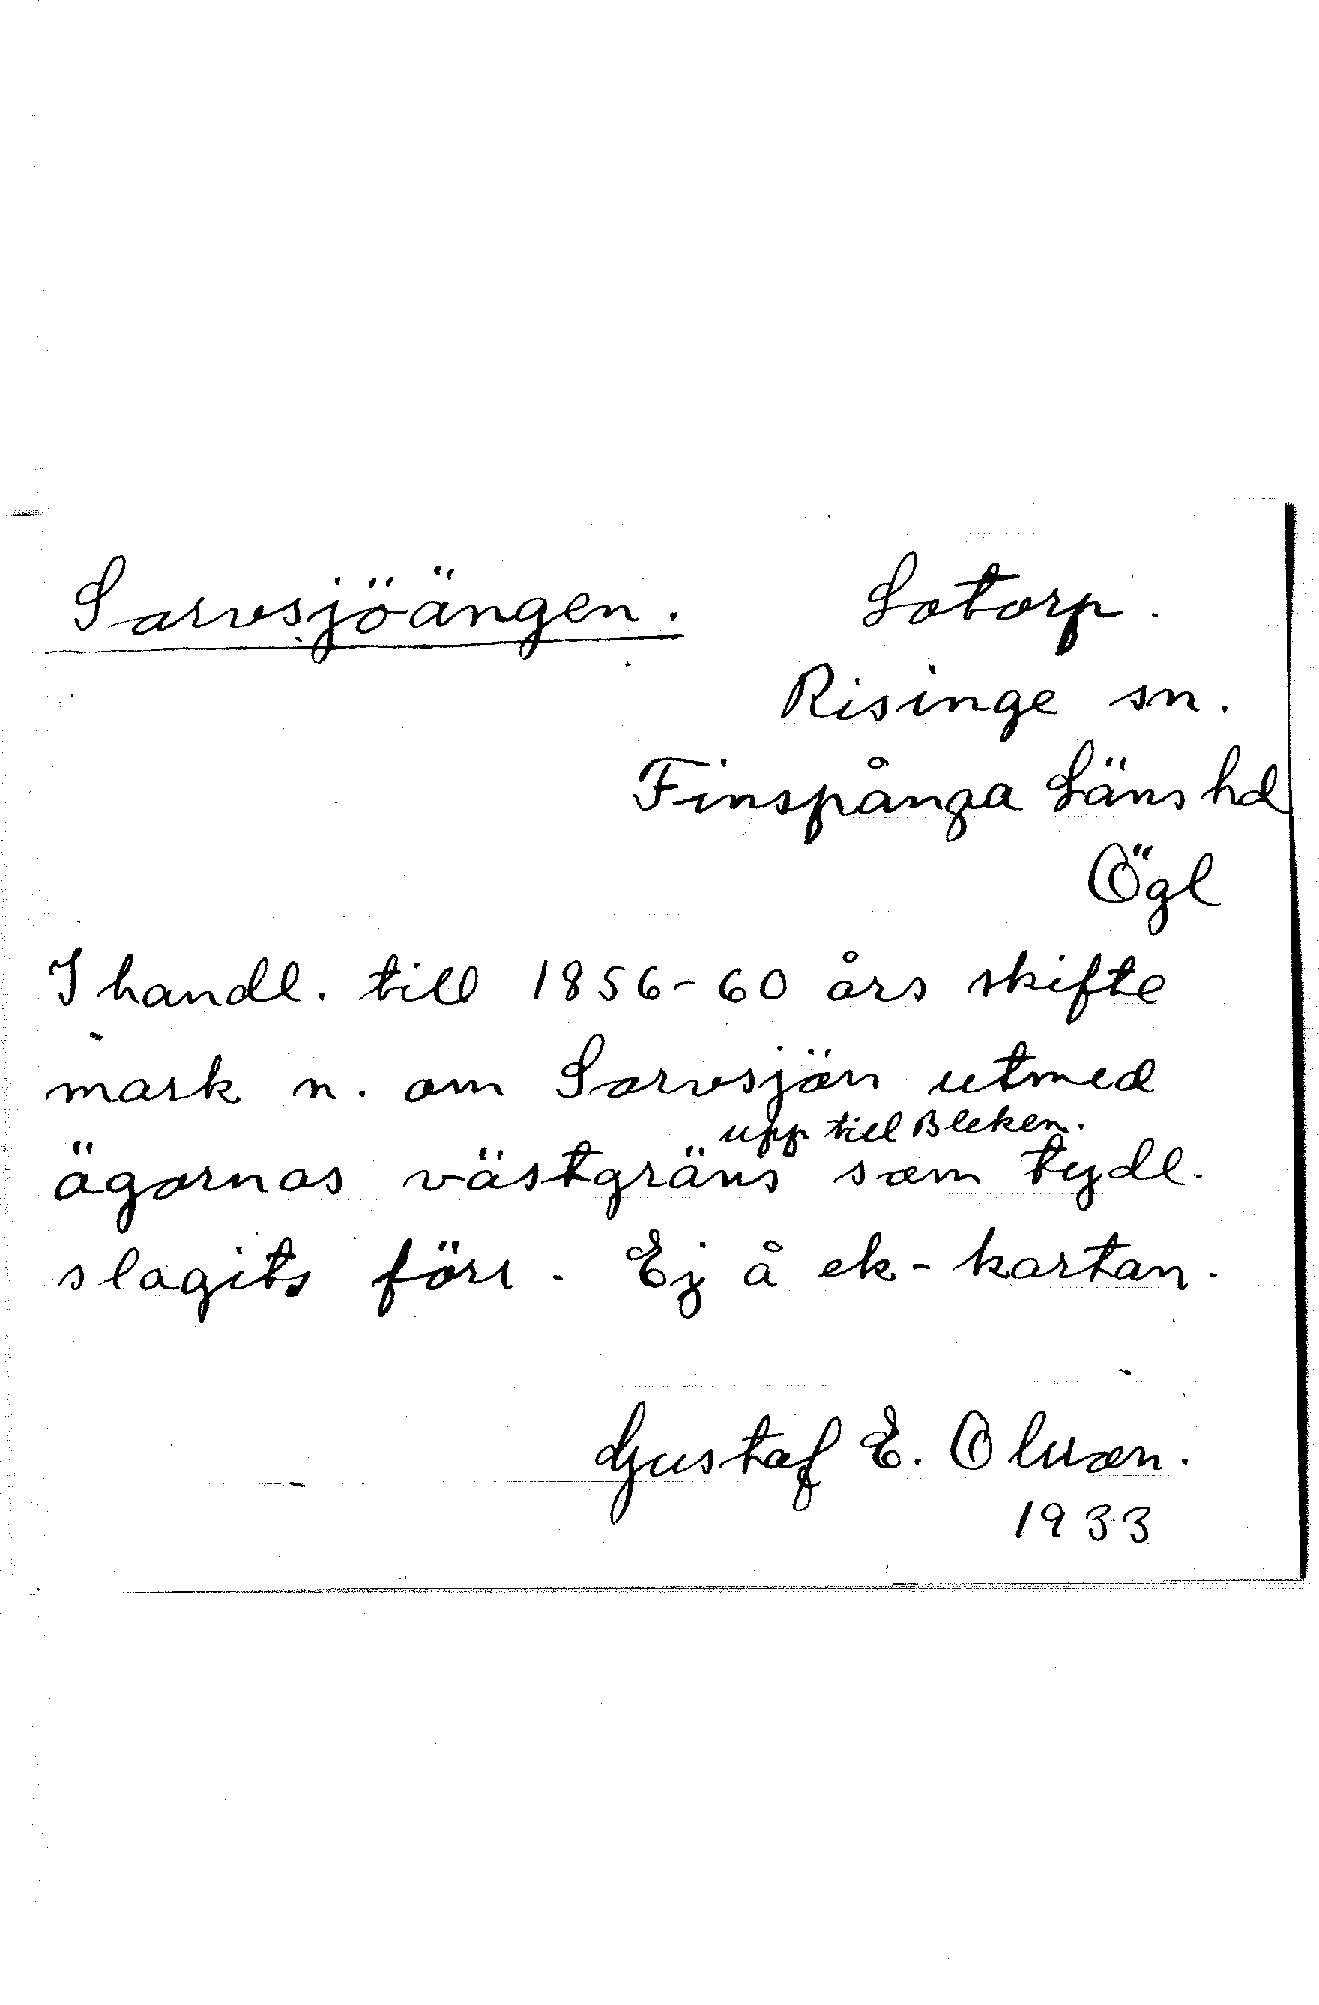 Sarvsjöängen. Lotorp.
Risinge sn.
Finspånga Läns hd
Ögl
I handl. till 1856-60 års skifte
mark n. om Sarvsjön utmed
upp till Bleken.
ägornas västgräns som tydl.
slagits förr. Ej å ek-kartan.
Gustaf E. Olsson.
1933